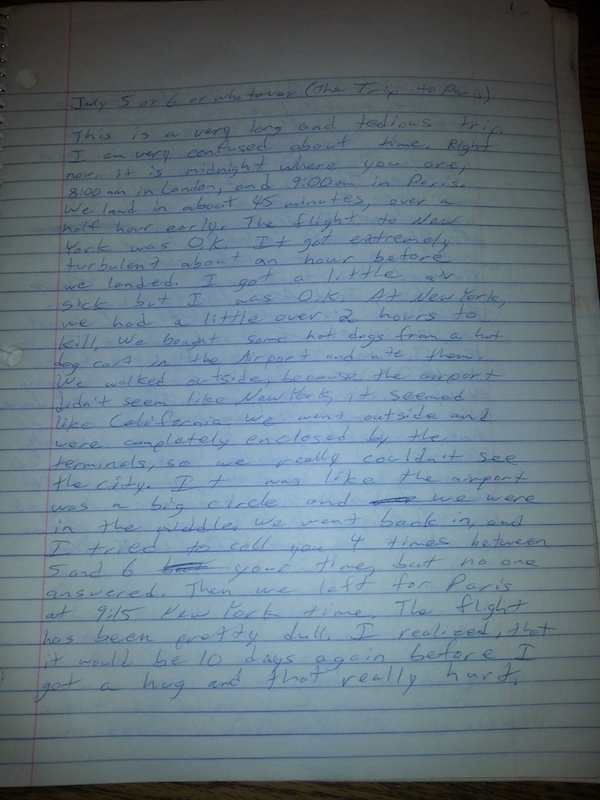 1
July 5 or 6 or whatever (The Trip to Paris)
This is a very long and tedious trip.
I am very confused about time. Right
now, it is midnight where you are,
8:00 am in London, and 9:00 am in Paris.
We land in about 45 minutes, over a
half hour early. The flight to New
York was O.K. It got extremely
turbulent about an hour before
we landed. I got a little air
sick but I was O.K. At New York,
we had a little over 2 hours to
kill. We bought some hot dogs from a hot
dog cart in the Airport and ate them.
We walked outside, because the airport
didn't seem like New York, it seemed
like California. We went outside and
were completely enclosed by the
terminals, so we really couldn't see
the city. It was like the airport
was a big circle and we were
in the middle. We went back in, and
I tried to call you 4 times between
5 and 6 your time, but no one
answered. Then we left for Paris
at 9:15 New York time. The flight
has been pretty dull. I realized, that
it would be 10 days again before I
got a hug and that really hurt.